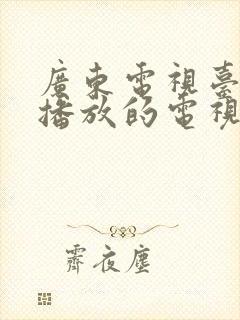 廣東電視臺
播放的電視
霽夜塵